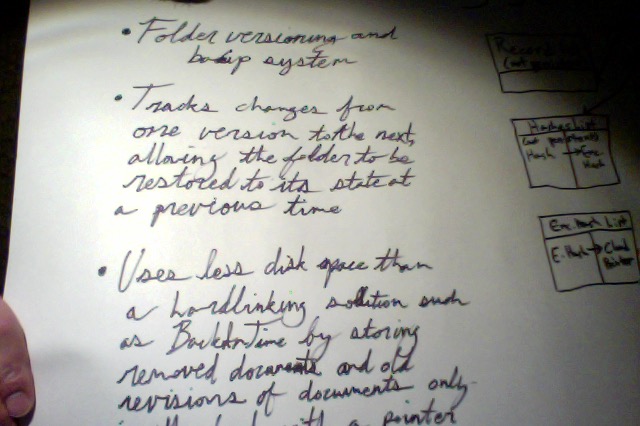 • Folder versioning and
backup system
• Tracks changes from
one version to the next,
allowing the folder to be
restored to its state at
a previous time
• Uses less disk space than
a hardlinking solution such
as BackInTime by storing
removed documents and old
revisions of documents only
with a pointer
Record
Hashes List
Hash → Enc.
Hash
Enc. Hash List
E. Hash → Cloud
Pointer